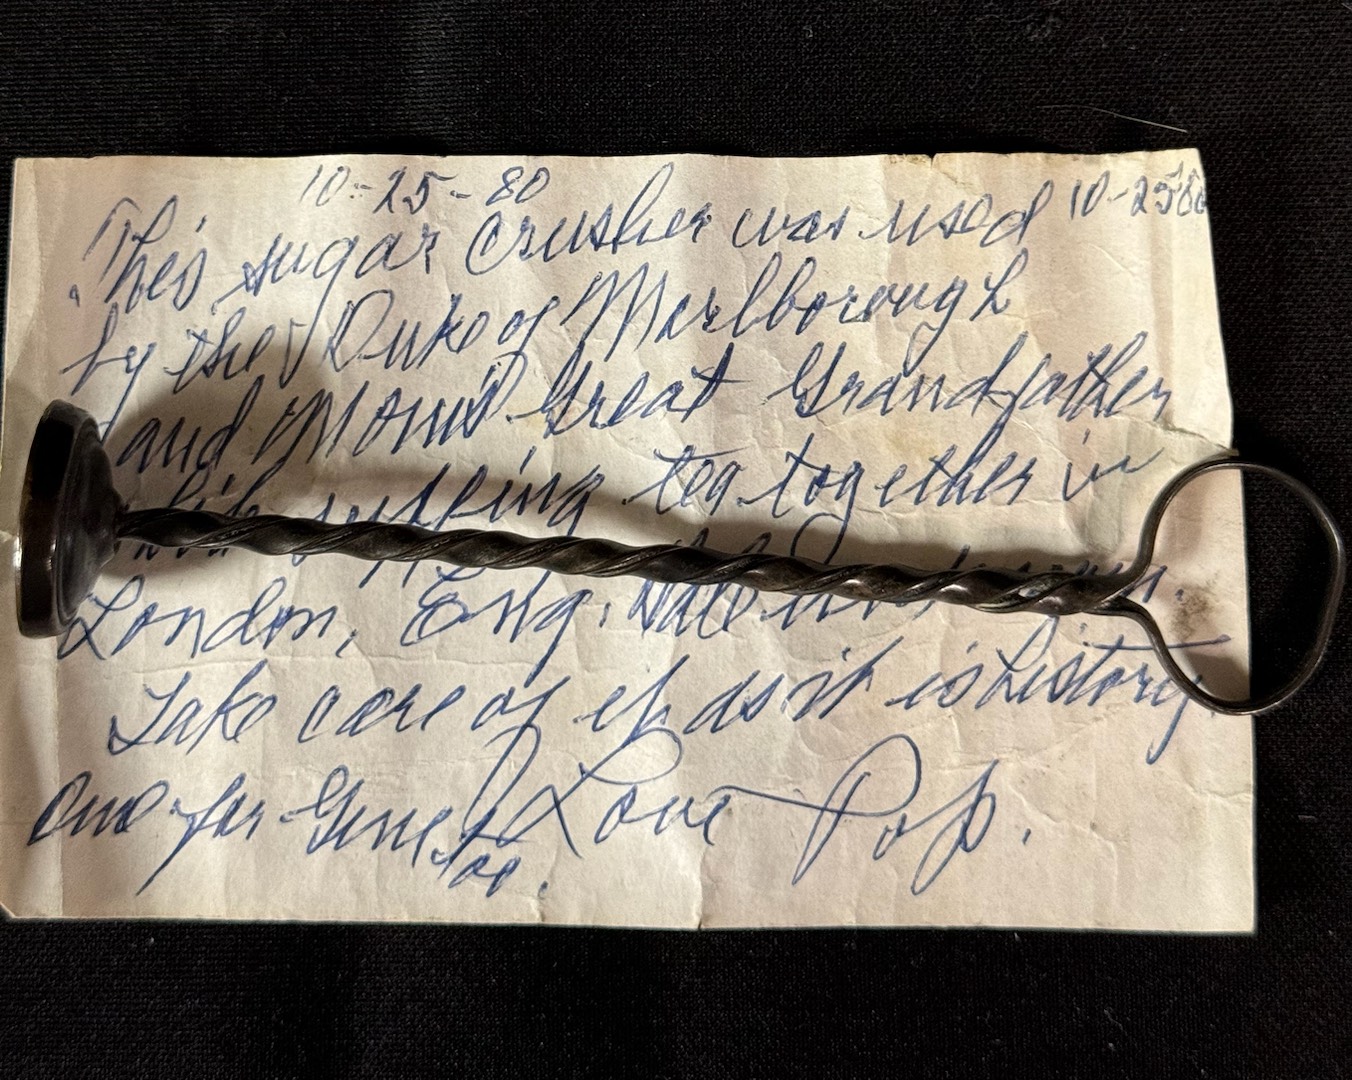 10-25-80
This sugar crusher was used 10-25 80
by the Duke of Marlborough
and Mom's Great Grandfather
while supping tea together in
London, Eng.
Take care of it as it is history
one for Gene too. Love Pop.